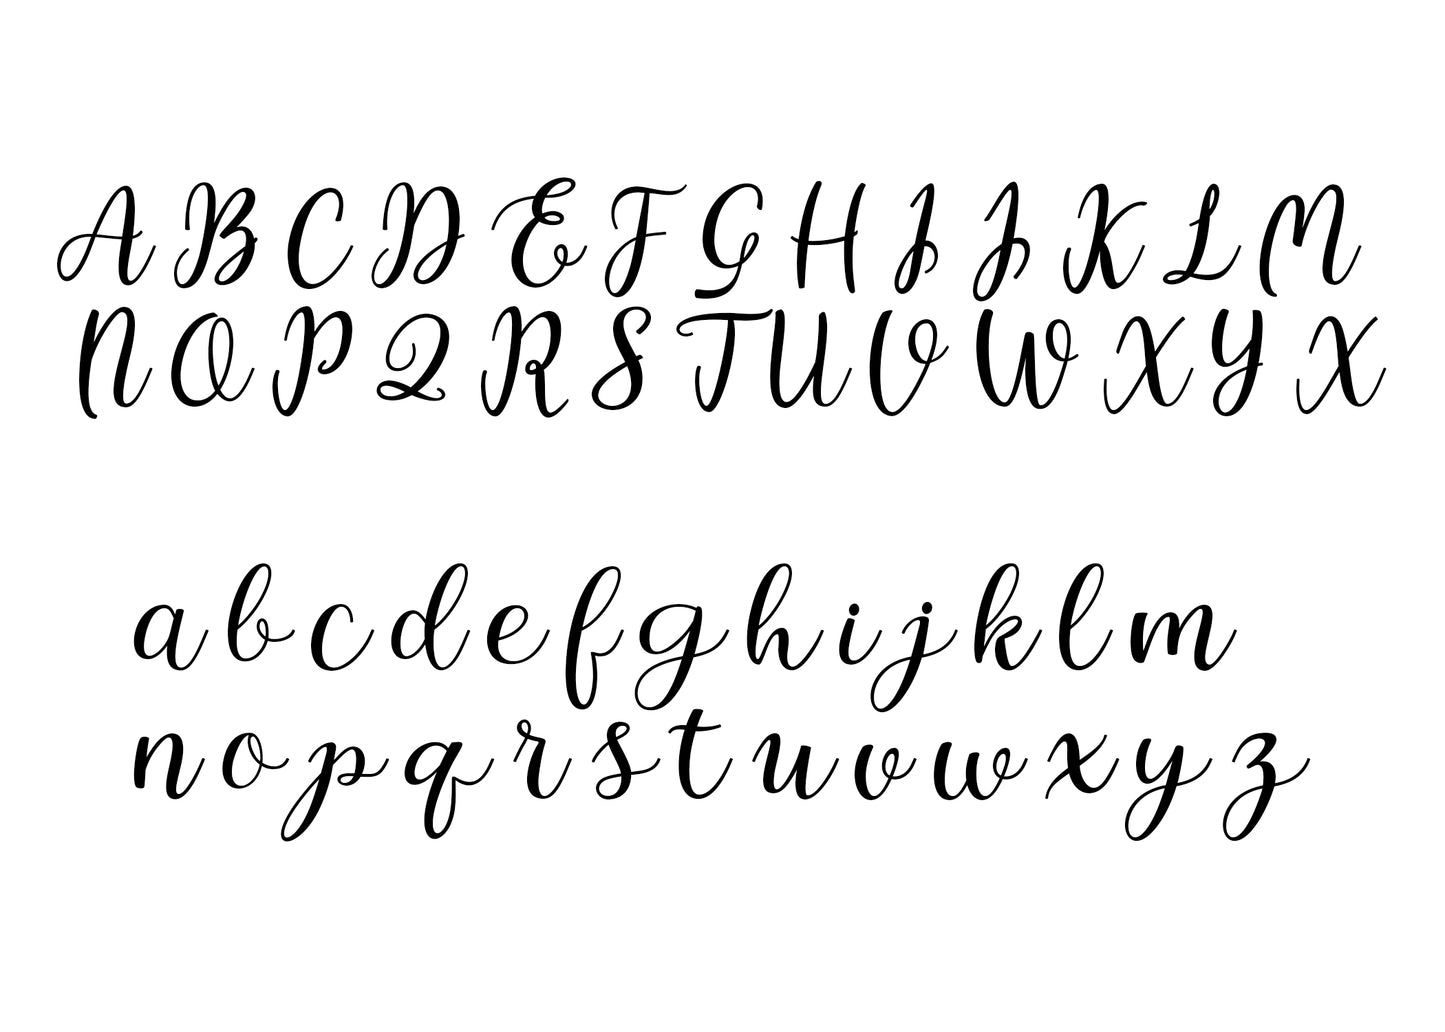 A B C D E F G H I J K L M
N O P Q R S T U V W X Y X
a b c d e f g h i j k l m
n o p q r s t u v w x y z